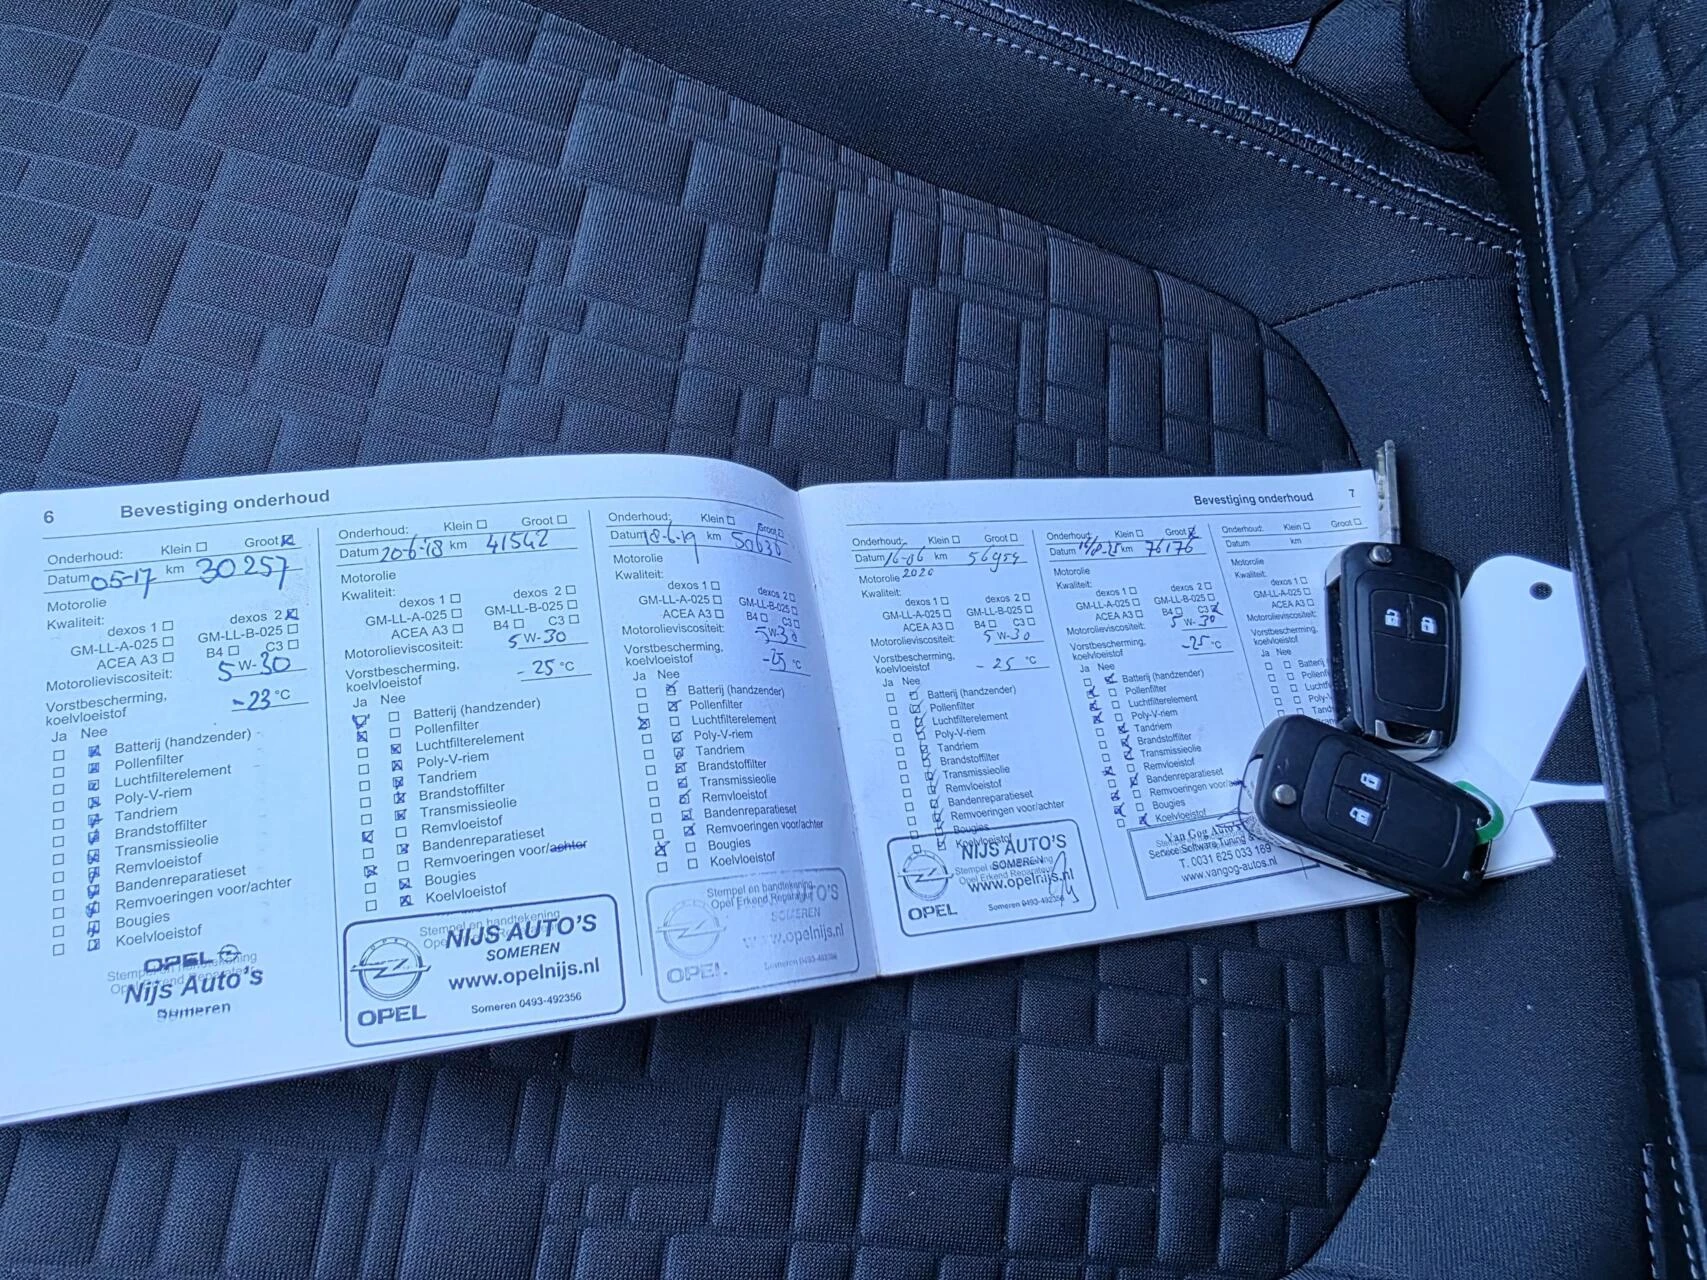 6 Bevestiging onderhoud
Onderhoud: Klein Groot
Datum 05-17 km 30257
Motorolie
Kwaliteit:
dexos 1 dexos 2
GM-LL-A-025 GM-LL-B-025
ACEA A3 B4 C3
Motorolieviscositeit: 5 W-30
Vorstbescherming,
koelvloeistof -23 °C
Ja Nee
Batterij (handzender)
Pollenfilter
Luchtfilterelement
Poly-V-riem
Tandriem
Brandstoffilter
Transmissieolie
Remvloeistof
Bandenreparatieset
Remvoeringen voor/achter
Bougies
Koelvloeistof
OPEL
Nijs Auto's
Someren
Onderhoud: Klein Groot
Datum 20-6-'18 km 41542
Motorolie
Kwaliteit:
dexos 1 dexos 2
GM-LL-A-025 GM-LL-B-025
ACEA A3 B4 C3
5 W-30
Vorstbescherming,
koelvloeistof -25 °C
Ja Nee
Batterij (handzender)
Pollenfilter
Luchtfilterelement
Poly-V-riem
Tandriem
Brandstoffilter
Transmissieolie
Remvloeistof
Bandenreparatieset
Remvoeringen voor/achter
Bougies
Koelvloeistof
Stempel en handtekening
NIJS AUTO'S
SOMEREN
www.opelnijs.nl
OPEL Someren 0493-492356
Onderhoud: Klein Groot
Datum 18-6-19 km
Motorolie
Kwaliteit:
dexos 1 dexos 2
GM-LL-A-025 GM-LL-B-025
ACEA A3 B4 C3
Motorolieviscositeit: 5 W-30
Vorstbescherming,
koelvloeistof -25 °C
Ja Nee
Batterij (handzender)
Pollenfilter
Luchtfilterelement
Poly-V-riem
Tandriem
Brandstoffilter
Transmissieolie
Remvloeistof
Bandenreparatieset
Remvoeringen voor/achter
Bougies
Koelvloeistof
Stempel en handtekening
Opel Erkend Reparateur
SOMEREN
www.opelnijs.nl
OPEL Someren 0493-492356
Bevestiging onderhoud 7
Onderhoud: Klein Groot
Datum 16-06 km 56954
Motorolie 2020
Kwaliteit:
dexos 1 dexos 2
GM-LL-A-025 GM-LL-B-025
ACEA A3 B4 C3
Motorolieviscositeit: 5 W-30
Vorstbescherming,
koelvloeistof -25 °C
Ja Nee
Batterij (handzender)
Pollenfilter
Luchtfilterelement
Poly-V-riem
Tandriem
Brandstoffilter
Transmissieolie
Remvloeistof
Bandenreparatieset
Remvoeringen voor/achter
Bougies
Koelvloeistof
NIJS AUTO'S
SOMEREN
www.opelnijs.nl
OPEL Someren 0493-492356
Onderhoud: Klein Groot
Datum km 76176
Motorolie
Kwaliteit:
dexos 1 dexos 2
GM-LL-A-025 GM-LL-B-025
ACEA A3 B4 C3
Motorolieviscositeit: 5 W-30
Vorstbescherming,
koelvloeistof -25 °C
Ja Nee
Batterij (handzender)
Pollenfilter
Luchtfilterelement
Poly-V-riem
Tandriem
Brandstoffilter
Transmissieolie
Remvloeistof
Bandenreparatieset
Remvoeringen
Bougies
Koelvloeistof
Van Gog Auto
Service Software Tuning &
T. 0031 625 033 189
www.vangog-autos.nl
Onderhoud: Klein Groot
Datum km
Motorolie
Kwaliteit:
dexos 1
GM-LL-A-025
ACEA A3
Motorolieviscositeit:
Vorstbescherming,
koelvloeistof
Ja Nee